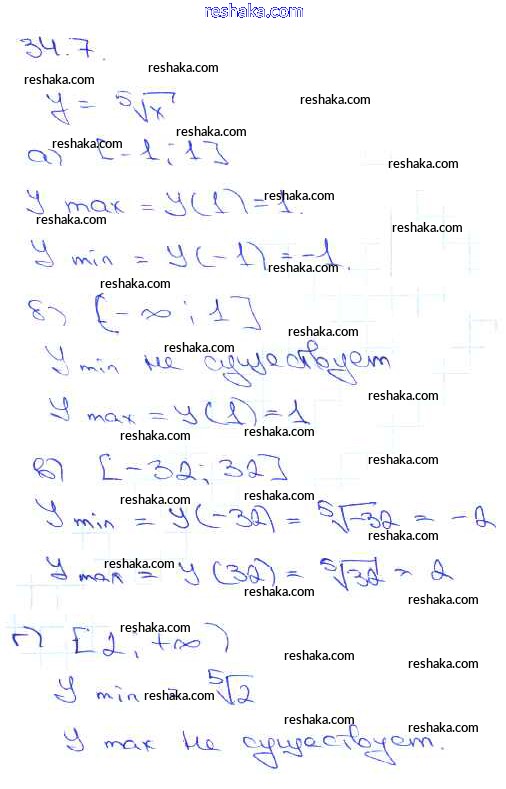 reshaka.com
34.7.
reshaka.com
reshaka.com
y = ⁵√x
reshaka.com
reshaka.com
reshaka.com
а) [-1; 1]
reshaka.com
y max = y(1) = 1.
reshaka.com
reshaka.com
reshaka.com
y min = y(-1) = -1.
reshaka.com
reshaka.com
б) [-∞; 1]
reshaka.com
reshaka.com
y min не существует
reshaka.com
y max = y(1) = 1
reshaka.com
reshaka.com
reshaka.com
в) [-32; 32]
reshaka.com
reshaka.com
y min = y(-32) = ⁵√-32 = -2
reshaka.com
reshaka.com
y max = y(32) = ⁵√32 = 2
reshaka.com
reshaka.com
г) [2; +∞)
reshaka.com
reshaka.com
y min = ⁵√2
reshaka.com
reshaka.com
reshaka.com
y max не существует.